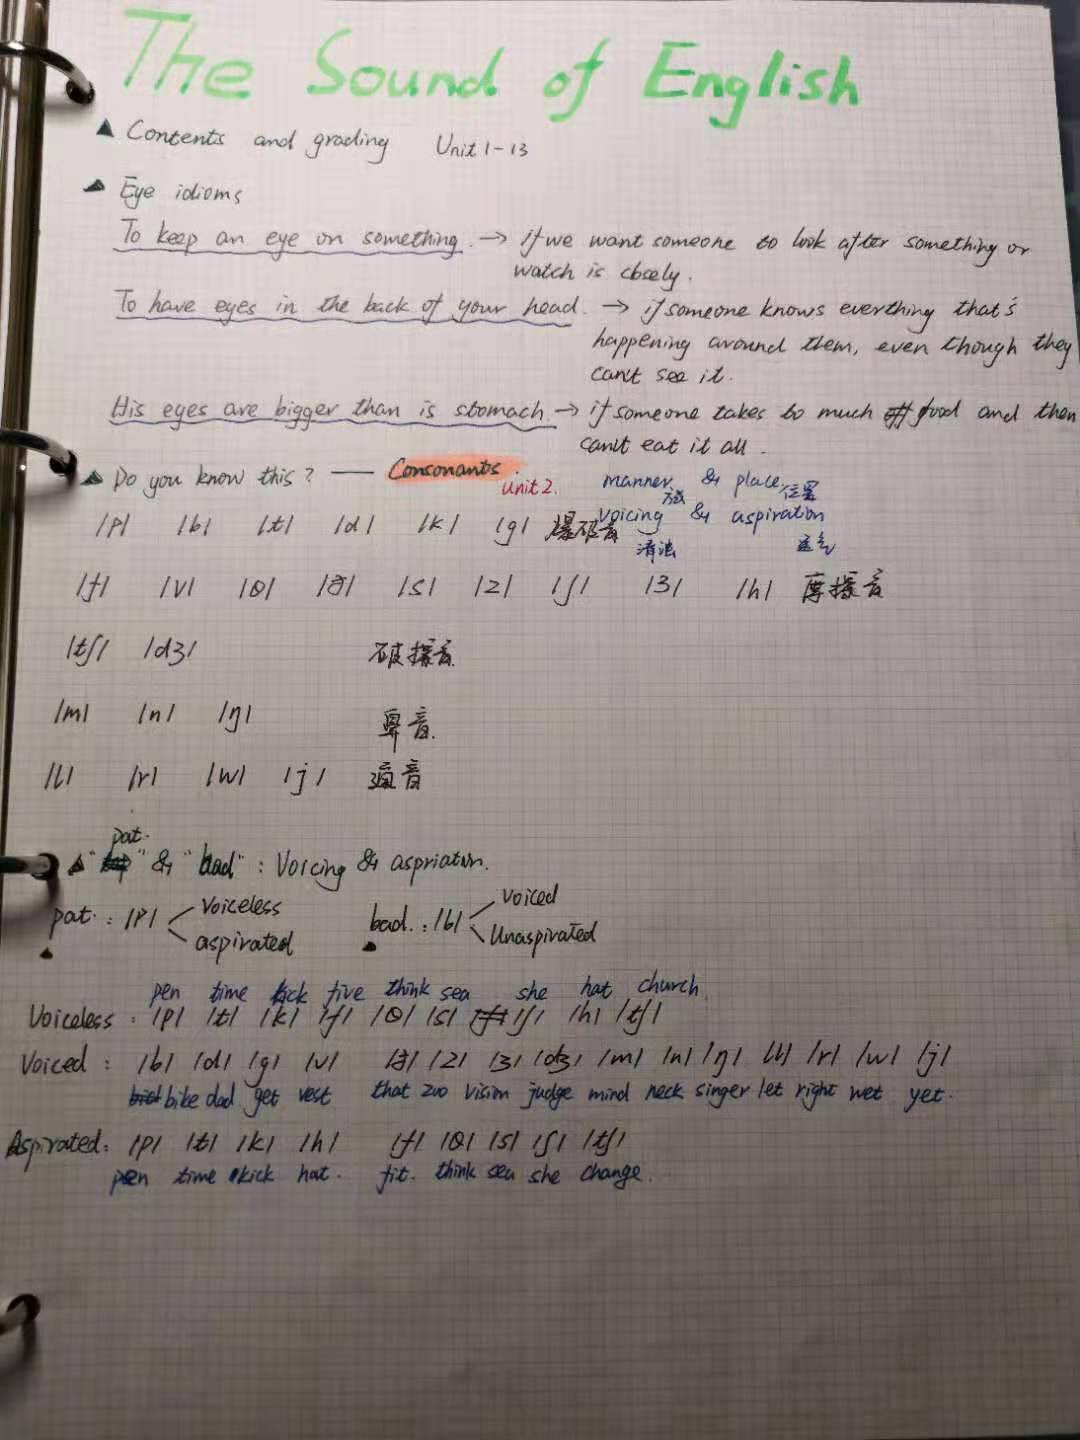 The Sound of English
▲ Contents and grading Unit 1-13
▲ Eye idioms
To keep an eye on something. → if we want someone to look after something or
watch is closely.
To have eyes in the back of your head. → if someone knows everthing that's
happening around them, even though they
can't see it.
His eyes are bigger than is stomach → if someone takes to much food and then
can't eat it all.
▲ Do you know this? — Consonants.
unit 2. manner & place 位置
方式
/p/ /b/ /t/ /d/ /k/ /g/ 爆破音 voicing & aspiration
清浊 送气
/f/ /v/ /θ/ /ð/ /s/ /z/ /ʃ/ /ʒ/ /h/ 摩擦音
/tʃ/ /dʒ/ 破擦音
/m/ /n/ /ŋ/ 鼻音.
/l/ /r/ /w/ /j/ 通音
pat.
▲ " " & "bad" : Voicing & aspriation.
pat. : /p/ voiceless bad. : /b/ voiced
aspirated Unaspirated
pen time kick five think sea she hat church
Voiceless : /p/ /t/ /k/ /f/ /θ/ /s/ /ʃ/ /h/ /tʃ/
Voiced : /b/ /d/ /g/ /v/ /ð/ /z/ /ʒ/ /dʒ/ /m/ /n/ /ŋ/ /l/ /r/ /w/ /j/
bike dad get vest that zoo vision judge mind neck singer let right wet yet.
Aspirated: /p/ /t/ /k/ /h/ /f/ /θ/ /s/ /ʃ/ /tʃ/
pen time kick hat. fit. think sea she change.